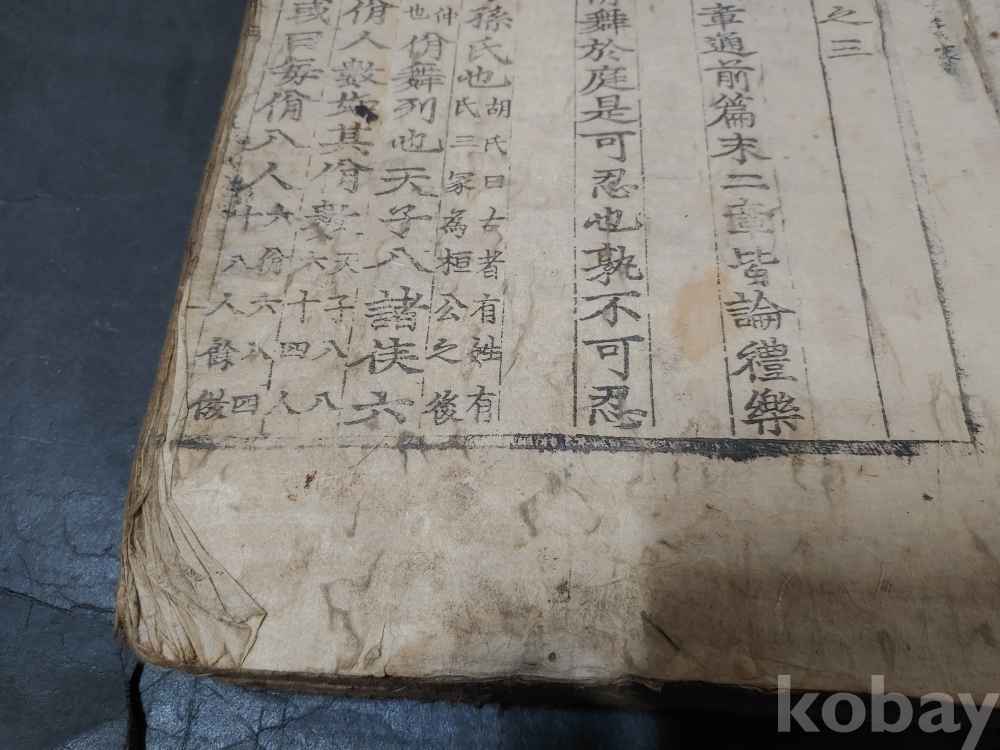 之三
章通前篇末二章皆論禮樂
舞於庭是可忍也孰不可忍
孫氏也
胡氏曰古者有姓有
氏三家為桓公之後
仲
也
佾舞列也天子八諸侯六
佾人數如其佾數
天子八八
六十四人
或曰每佾八人
六佾六八四
十八人餘倣
kobay